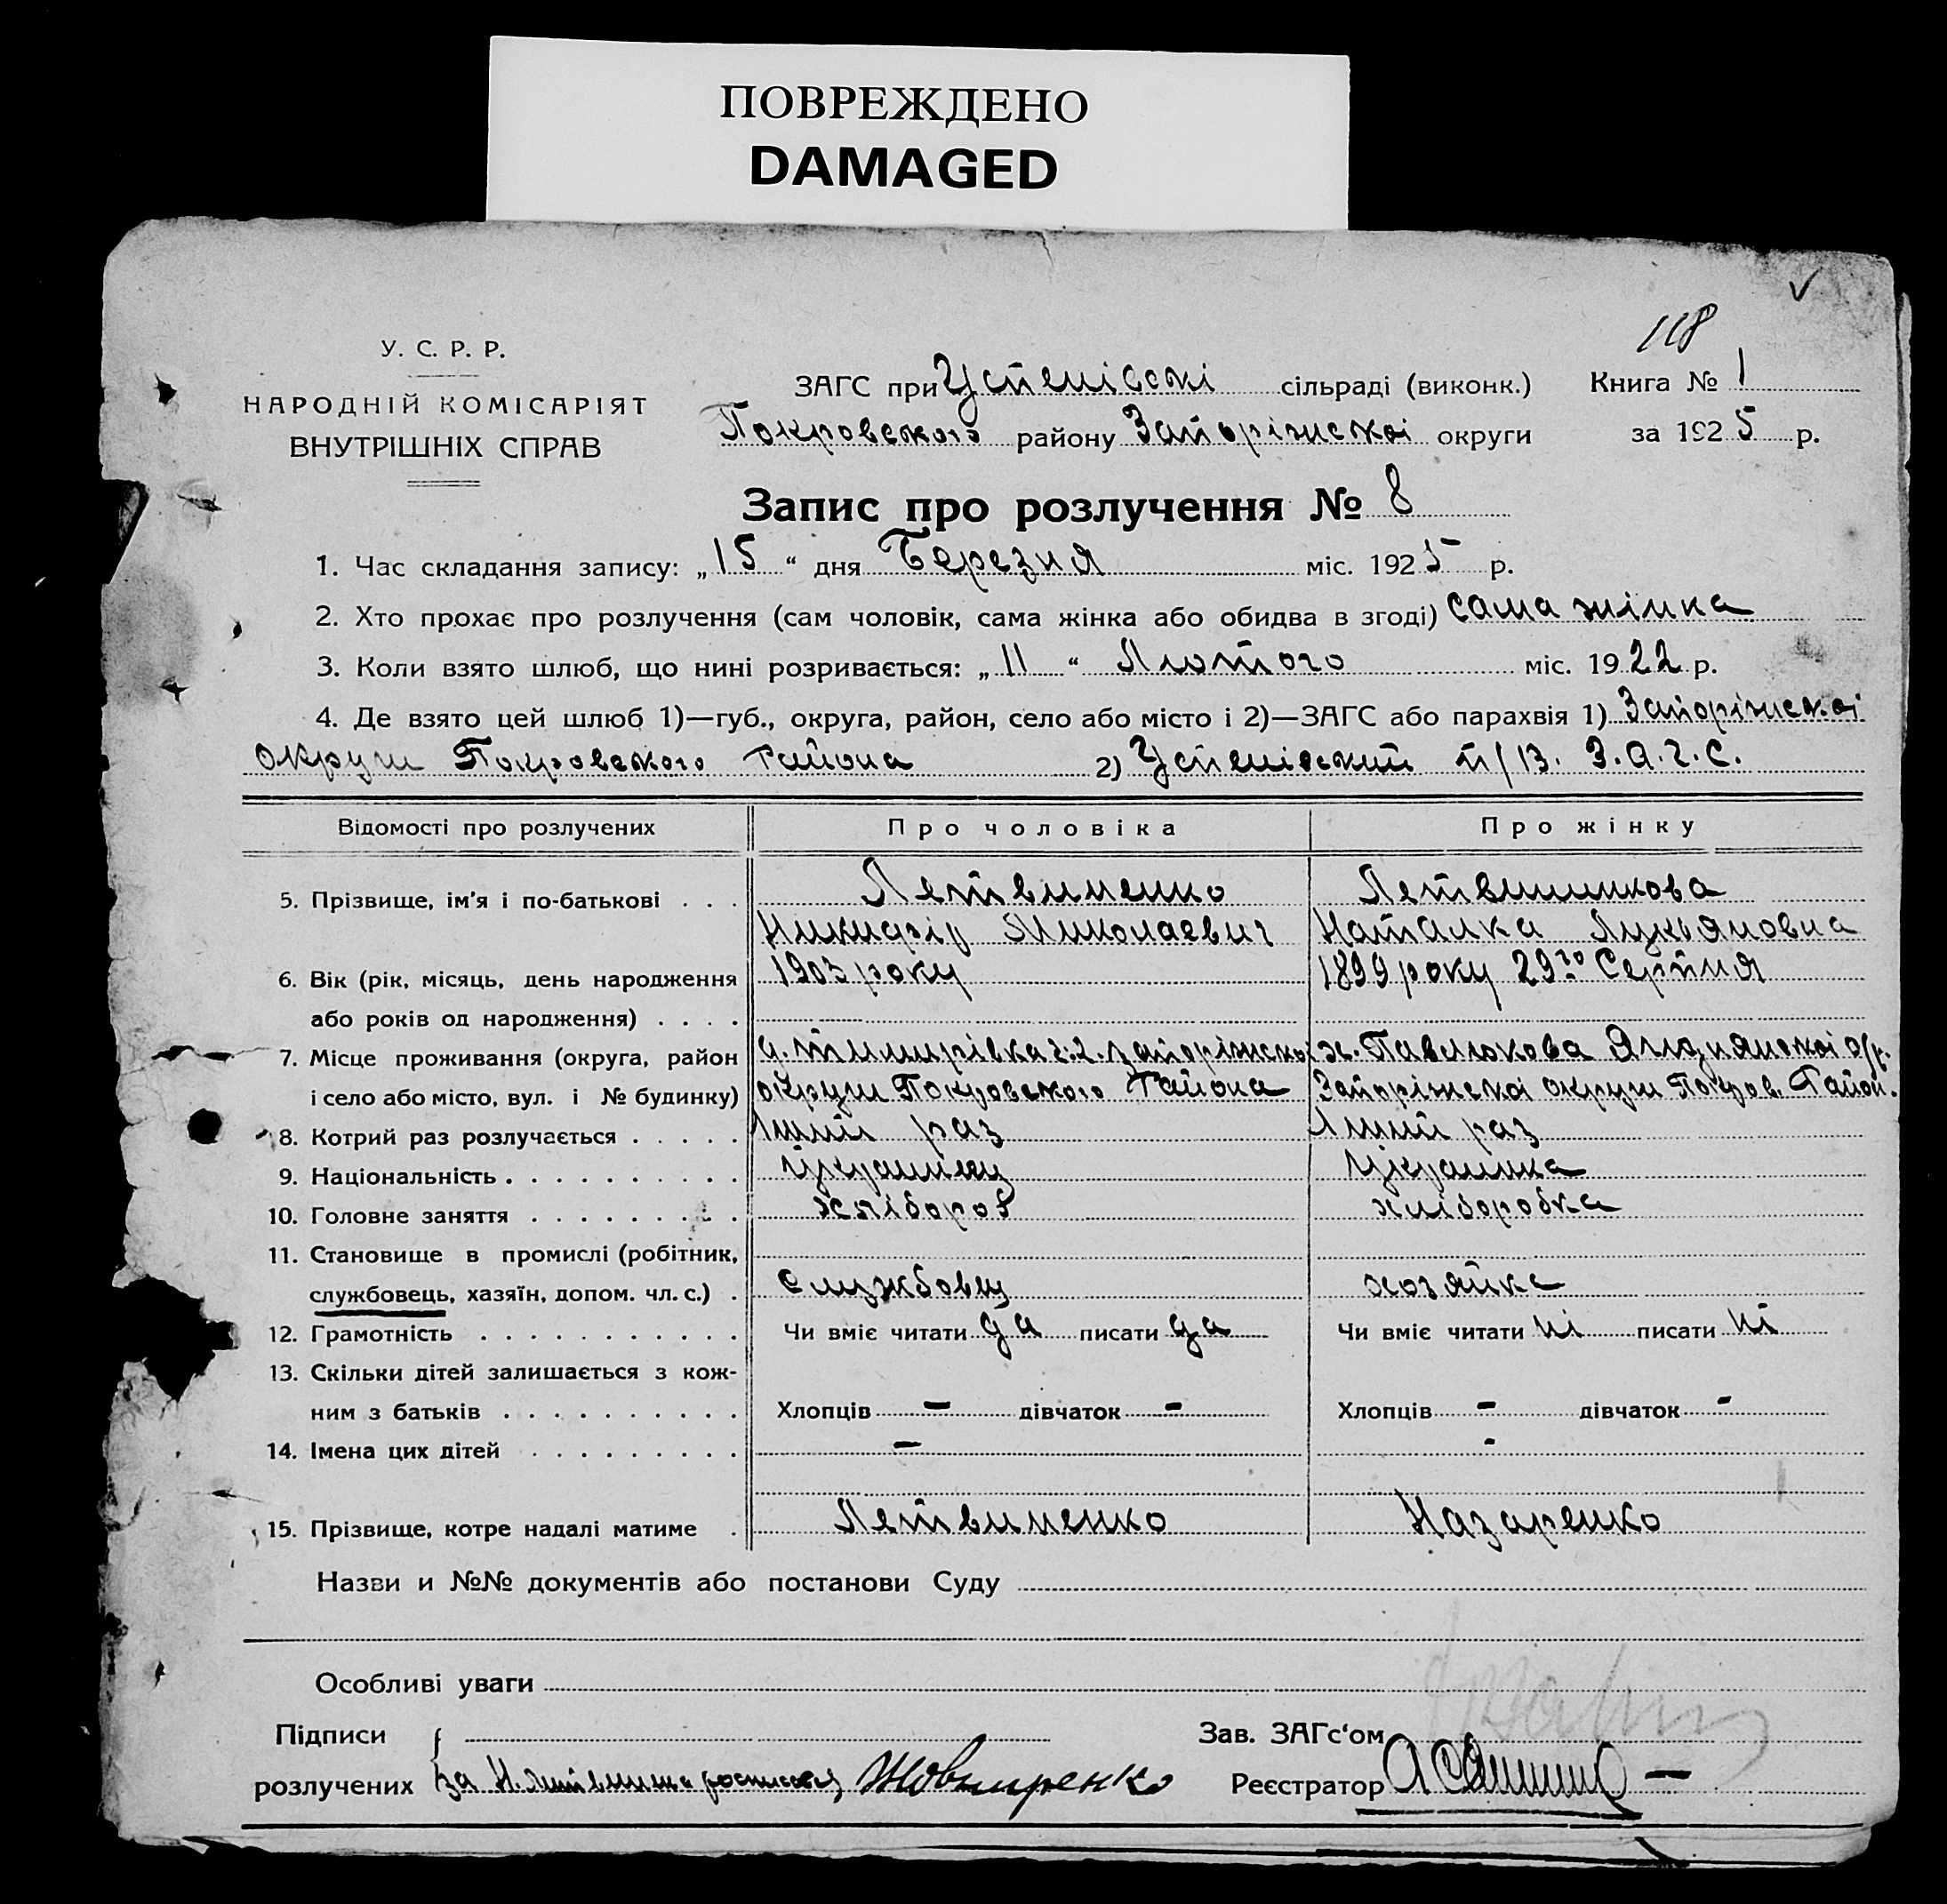 ПОВРЕЖДЕНО
DAMAGED
118
У. С. Р. Р.
НАРОДНІЙ КОМІСАРІЯТ
ВНУТРІШНІХ СПРАВ
ЗАГС при Успенівскі сільраді (виконк.) Книга № 1
Покровского району Запоріжскої округи за 1925 р.
Запис про розлучення № 8
1. Час складання запису: „15“ дня Березня міс. 1925 р.
2. Хто прохає про розлучення (сам чоловік, сама жінка або обидва в згоді) сама жінка
3. Коли взято шлюб, що нині розривається: „11“ Лютого міс. 1922 р.
4. Де взято цей шлюб 1)—губ., округа, район, село або місто і 2)—ЗАГС або парахвія 1) Запоріжскої
округи Покровского Района 2) Успенівский п/в. З.А.Г.С.
Відомості про розлучених Про чоловіка Про жінку
5. Прізвище, ім'я і по-батькові . . . Летвиненко Летвиникова
Никифір Миколаевич Наталка Лукьяновна
6. Вік (рік, місяць, день народження 1903 року 1899 року 29го Серпня
або років од народження) . . . .
7. Місце проживання (округа, район Запоріжскої х. Павлюкова
і село або місто, вул. і № будинку) округи Покровского Района Запоріжскої округи Покров. Район.
8. Котрий раз розлучається . . . . . 1ший раз 1ший раз
9. Національність . . . . . . . . . . Украінец Украинка
10. Головне заняття . . . . . . . . . хлібороб хліборобка
11. Становище в промислі (робітник,
службовець, хазяїн, допом. чл. с.) . службовец хозяйка
12. Грамотність . . . . . . . . . . . Чи вміє читати да писати да Чи вміє читати ні писати ні
13. Скільки дітей залишається з кож-
ним з батьків . . . . . . . . . . Хлопців — дівчаток - Хлопців - дівчаток -
14. Імена цих дітей . . . . . . . . . — -
15. Прізвище, котре надалі матиме . Летвиненко Назаренко
Назви и №№ документів або постанови Суду
Особливі уваги
Підписи Зав. ЗАГс‘ом
розлучених за Н. Реєстратор